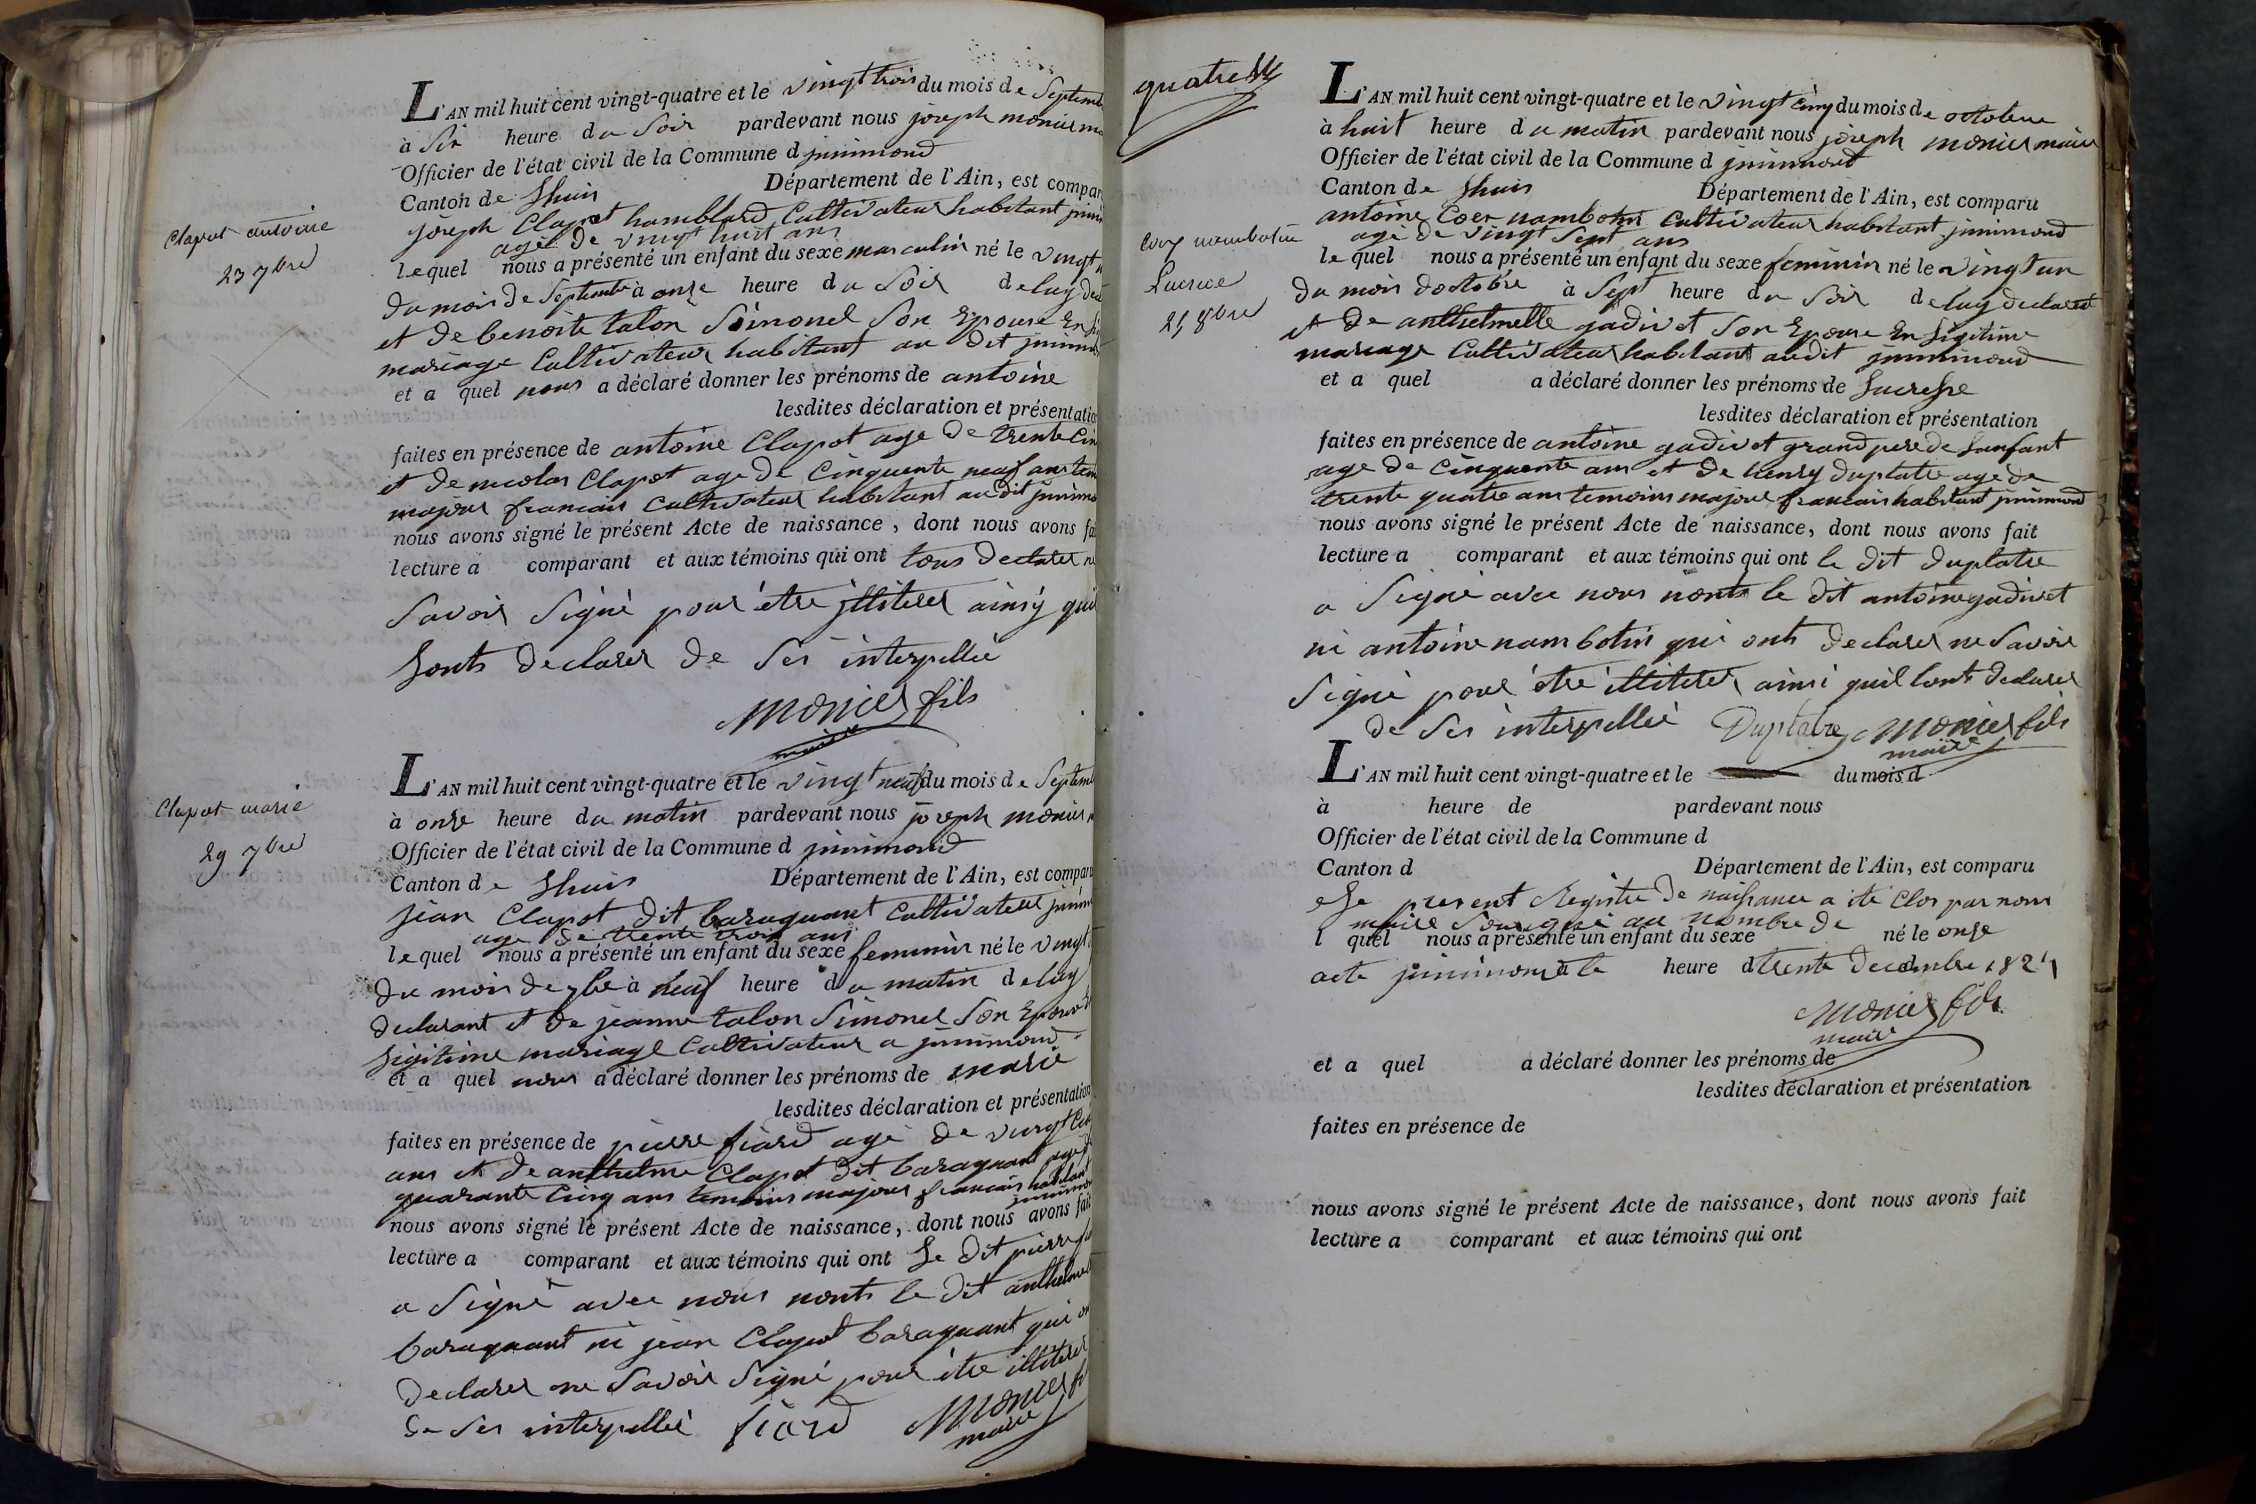 Clapot antoine
23 7bre
L'AN mil huit cent vingt-quatre et le vingt trois du mois de Septemb
à Six heure du Soir pardevant nous joseph monier
Officier de l'état civil de la Commune d jnnimond
Canton de Lhuis Département de l'Ain, est compar
joseph Clapot hamblard Cultivateur habitant jnnim
agé de vingt huit ans
lequel nous a présenté un enfant du sexe masculin né le vingt
du mois de Septembre à onze heure du Soir de luy
et de benoite talon Simonel Son Epouse En
mariage Cultivateur habitant au dit jnnimon
et a quel nous a déclaré donner les prénoms de antoine
lesdites déclaration et présentatio
faites en présence de antoine Clapot age de trente Cin
et de nicolas Clapot age de Cinquente neuf ans tem
majour francais Cultivateur habitant au dit jnnimo
nous avons signé le présent Acte de naissance, dont nous avons fa
lecture a comparant et aux témoins qui ont tous declarer n
Savoir Signé pour être jlliterer ainsy quil
Lonts declarer de Ses interpellée
monier fils
maire
Clapot marie
29 7bre
L'AN mil huit cent vingt-quatre et le vingt neuf du mois de Septem
à onze heure du matin pardevant nous joseph monier
Officier de l'état civil de la Commune d jnnimond
Canton de Lhuis Département de l'Ain, est comparu
jean Clapot dit baraquant Cultivateur jnnim
age de trente trois ans
lequel nous a présenté un enfant du sexe feminin né le vingt
du mois de 7bre à neuf heure du matin de luy
declarant et de jeanne talon Simonel Son Epouse
Ligitime mariage Cultivateur a jnnimond
et a quel nous a déclaré donner les prénoms de marie
lesdites déclaration et présentation
faites en présence de pierre fiard agé de vingt Cin
ans et de anthelme Clapot dit baraquant agé d
quarante Cinq ans temoins majour francais habitant
jnnimon
nous avons signé le présent Acte de naissance, dont nous avons fait
lecture a comparant et aux témoins qui ont Le dit pierre
a Signé avec nous nonts le dit anthelme
baraquant ni jean Clapot baraquant qui on
declarer ne Savoir Signé pour être illiterer
de Ses interpellée fiard monier
maire
quatre
Coex nambotin
Lucrece
25 8bre
L'AN mil huit cent vingt-quatre et le vingt Cinq du mois de octobre
à huit heure du matin pardevant nous joseph monier maire
Officier de l'état civil de la Commune d jnnimond
Canton de Lhuis Département de l'Ain, est comparu
antoine Coex nambotin Cultivateur habitant jnnimond
agé de vingt Sept ans
le quel nous a présenté un enfant du sexe feminin né le vingt un
du mois doctobre à Sept heure du Soir de luy declarant
et de anthelmette gadivet Son Epouse En Ligitime
mariage Cultivateur habitant audit jnnimond
et a quel a déclaré donner les prénoms de Lucresse
lesdites déclaration et présentation
faites en présence de antoine gadivet grand pere de Lanfant
age de Cinquente ans et de henry duplatre age de
trente quatre ans temoins majour francais habitant jnnimond
nous avons signé le présent Acte de naissance, dont nous avons fait
lecture a comparant et aux témoins qui ont le dit duplatre
a Signé avec nous nonts le dit antoine gadivet
ni antoine nambotin qui onts declarer ne Savoir
Signé pour être illiterer ainsi quil Lonts declarer
de Ses interpellée Duplatre monier fils
maire
L'AN mil huit cent vingt-quatre et le du mois d
à heure de pardevant nous
Officier de l'état civil de la Commune d
Canton d Département de l'Ain, est comparu
Le present Registre de naissance a ité Clos par nous
maire Sousigné au nombre de
l quel nous a présenté un enfant du sexe né le onze
acte jnnimond le à heure d trente decembre 1824
monier fils
maire
et a quel a déclaré donner les prénoms de
lesdites déclaration et présentation
faites en présence de
nous avons signé le présent Acte de naissance, dont nous avons fait
lecture a comparant et aux témoins qui ont